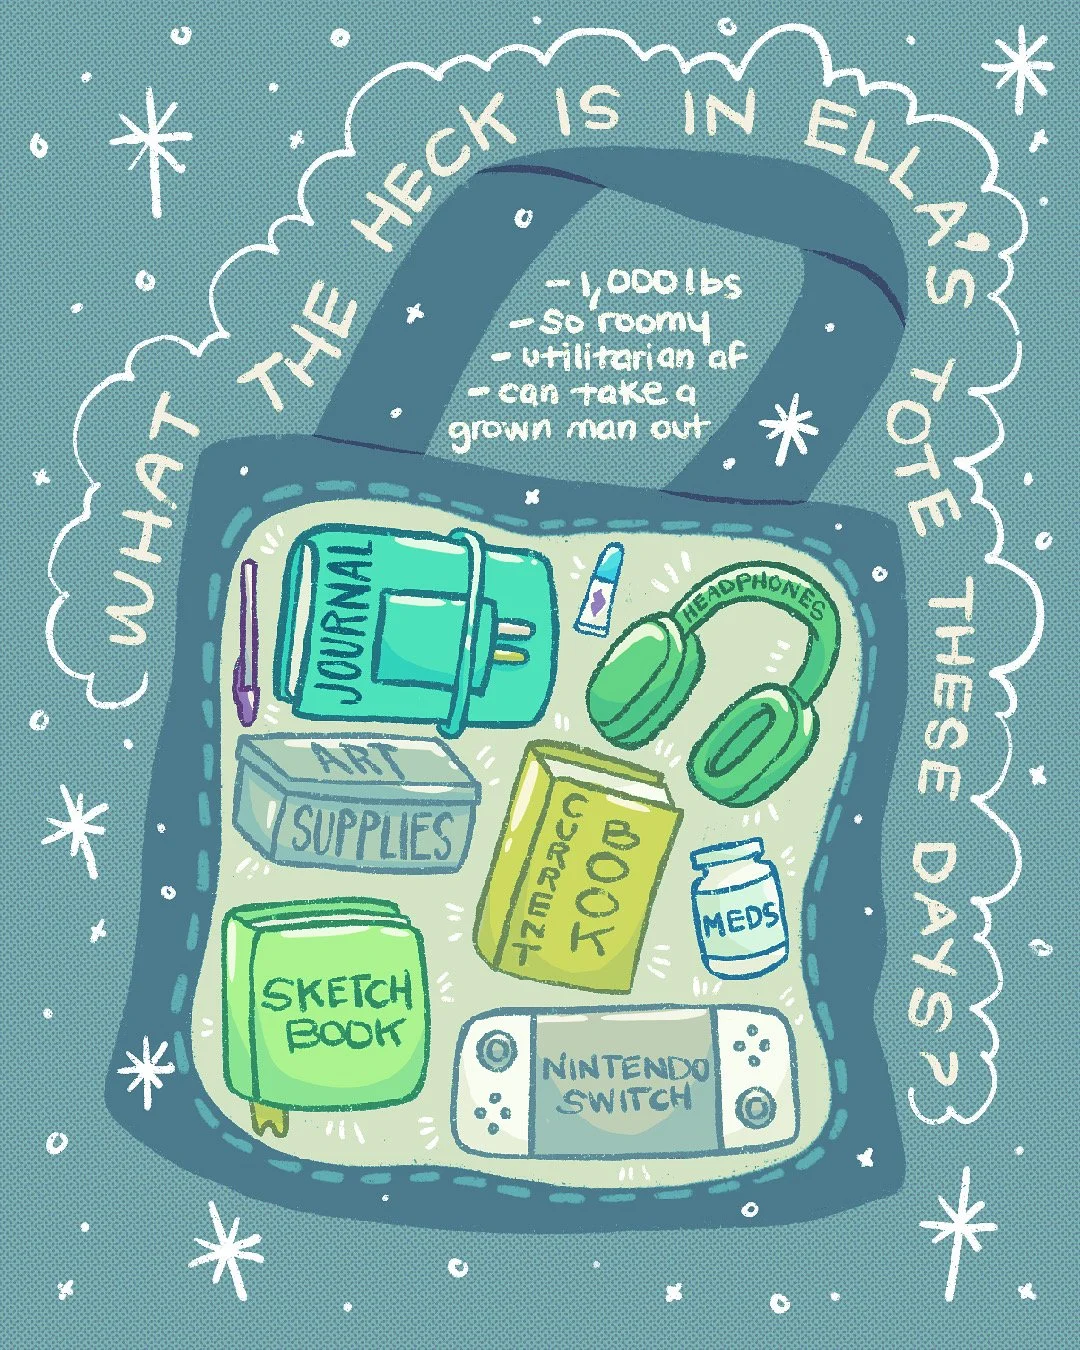 WHAT THE HECK IS IN ELLA'S TOTE THESE DAYS?
- 1,000 lbs
- so roomy
- utilitarian af
- can take a
grown man out
JOURNAL
HEADPHONES
ART
SUPPLIES
CURRENT
BOOK
MEDS
SKETCH
BOOK
NINTENDO
SWITCH